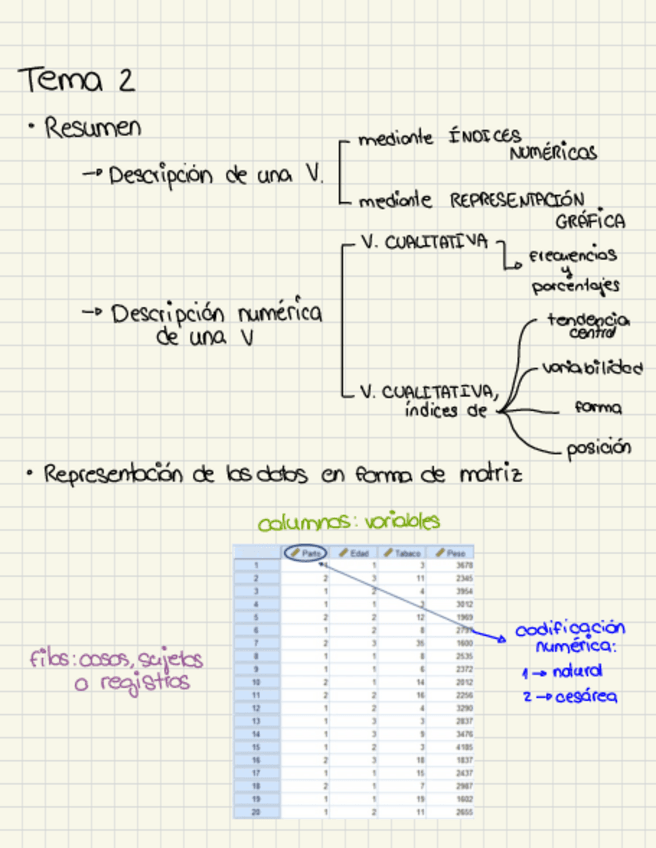 Tema 2
• Resumen
→ Descripción de una V.
mediante ÍNDICES
NUMÉRICOS
mediante REPRESENTACIÓN
GRÁFICA
→ Descripción numérica
de una V
V. CUALITATIVA
frecuencias
y
porcentajes
V. CUALITATIVA,
índices de
tendencia
central
variabilidad
forma
posición
• Representación de los datos en forma de matriz
columnas: variables
Parto Edad Tabaco Peso
1 1 1 3 3678
2 2 3 11 2345
3 1 2 4 3954
4 1 1 3012
5 2 2 12 1969
6 1 2 8
7 2 3 35 1600
8 1 1 8 2535
9 1 1 6 2372
10 2 1 14 2012
11 2 2 16 2256
12 1 2 4 3290
13 1 3 3 2837
14 1 3 9 3476
15 1 2 3 4185
16 2 3 18 1837
17 1 1 15 2437
18 2 1 7 2987
19 1 1 19 1602
20 1 2 11 2655
filas: casos, sujetos
o registros
codificación
numérica:
1 → natural
2 → cesárea